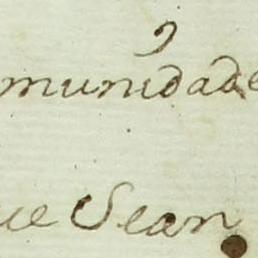 munidade
ue Sean